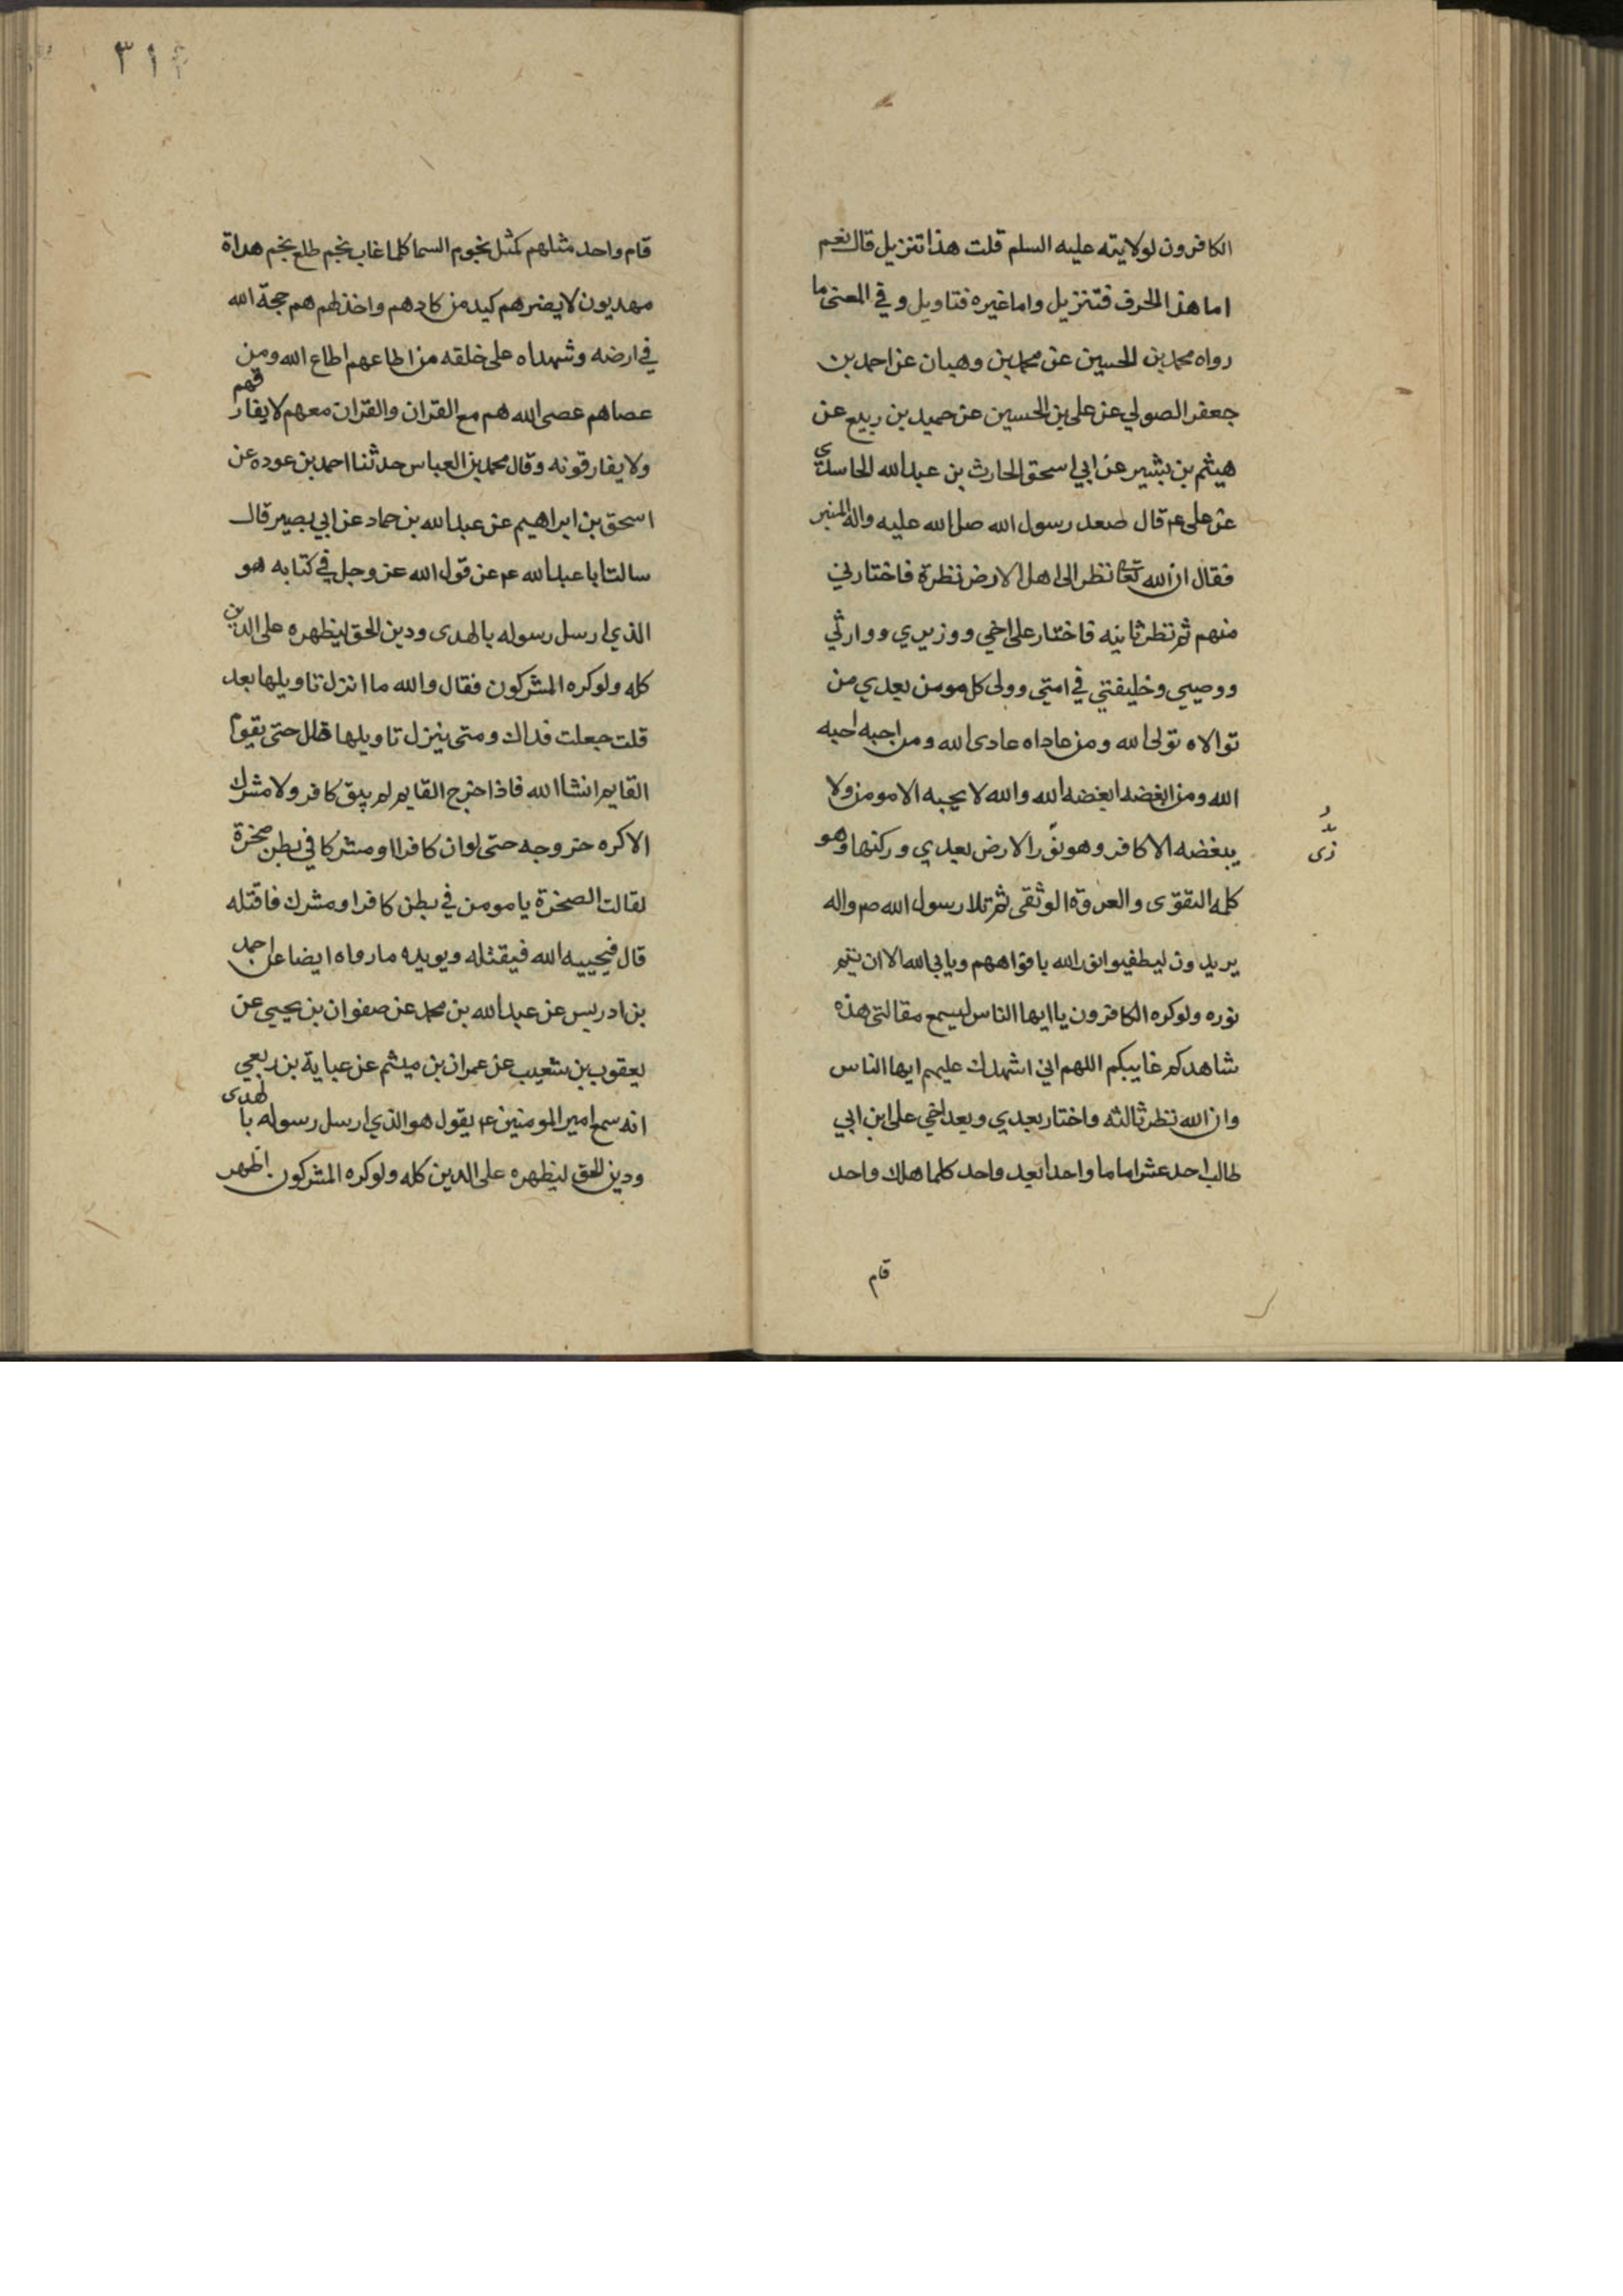 الكافرون لولايته عليه السلم قلت هذا تنزيل قال نعم
اما هذا الحرف فتنزيل واما غيره فتاويل وفي المعنى ما
رواه محمد بن الحسين عن محمد بن وهبان عن احمد بن
جعفر الصولي عن على بن الحسين عن حميد بن ربيع عن
هيثم بن بشير عن ابي اسحق الحارث بن عبدالله الحاسدى
عن على ع قال صعد رسول الله صلى الله عليه واله المنبر
فقال ان الله تعا نظر الى اهل الارض نظرة فاختارني
منهم ثم نظر ثانيه فاختار على اخي ووزيري ووارثي
ووصيي وخليفتي في امتي وولى كل مومن بعدي من
توالاه تولى الله ومن عاداه عادى الله ومن احبه احبه
الله ومن ابغضه ابغضه الله والله لا يحبه الا مومن ولا
يبغضه الا كافر وهو نور الارض بعدي وركنها وهو
كلمه التقوى والعروة الوثقى ثم تلا رسول الله ص واله
يريدون ليطفيوا نور الله بافواههم ويابى الله الا ان يتم
نوره ولوكره الكافرون يا ايها الناس ليسمع مقالتي هذه
شاهدكم غايبكم اللهم اني اشهدك عليهم ايها الناس
وان الله نظر ثالثه واختار بعدي وبعد اخي على ابن ابي
طالب احد عشر اماما واحدا بعد واحد كلما هلك واحد
قام
زى
٣١٢
قام واحد مثلهم كمثل نجوم السما كلما غاب نجم طلع نجم هداة
مهديون لا يضرهم كيد من كادهم واخذلهم هم حجة الله
في ارضه وشهداه على خلقه من اطاعهم اطاع الله ومن
عصاهم عصى الله هم مع القران والقران معهم لا يفارقهم
ولا يفارقونه وقال محمد بن العباس حدثنا احمد بن عوده عن
اسحق بن ابراهيم عن عبدالله بن حماد عن ابي بصير قال
سالت ابا عبدالله ع عن قول الله عز وجل في كتابه هو
الذي ارسل رسوله بالهدى ودين الحق ليظهره على الدين
كله ولوكره المشركون فقال والله ما انزل تاويلها بعد
قلت جعلت فداك ومتى ينزل تاويلها قال حتى يقوم
القايم انشا الله فاذا خرج القايم لم يبق كافر ولا مشرك
الا كره خروجه حتى لو ان كافرا او مشركا في بطن صخرة
لقالت الصخرة يا مومن في بطن كافر او مشرك فاقتله
قال فيجييه الله فيقتله ويويده ما رواه ايضا عن احمد
بن ادريس عن عبدالله بن محمد عن صفوان بن يحيى عن
يعقوب بن شعيب عن عمران بن ميثم عن عباية بن ربعي
انه سمع امير المومنين ع يقول هو الذي ارسل رسوله بالهدى
ودين الحق ليظهره على الدين كله ولوكره المشركون اظهر